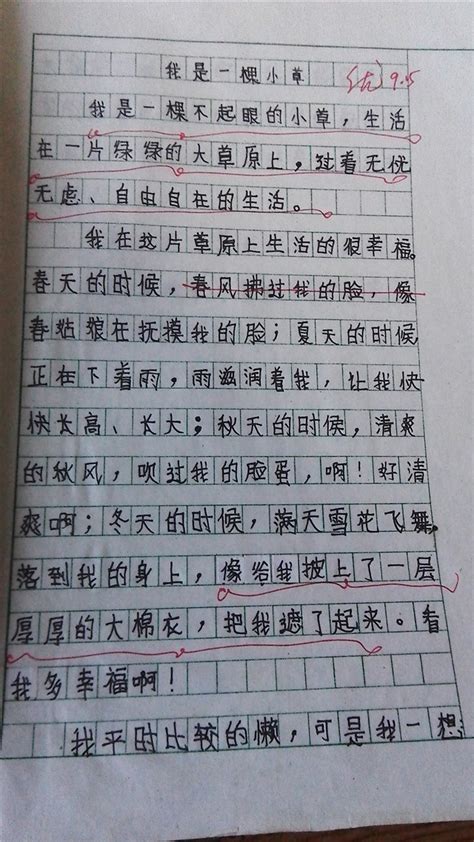 我是一棵小草 优 9.5
我是一棵不起眼的小草，生活
在一片绿绿的大草原上，过着无忧
无虑、自由自在的生活。
我在这片草原上生活的很幸福。
春天的时候，春风拂过我的脸，像
春姑娘在抚摸我的脸；夏天的时候
正在下着雨，雨滋润着我，让我快
快长高、长大；秋天的时候，清爽
的秋风，吹过我的脸蛋，啊！好清
爽啊；冬天的时候，满天雪花飞舞。
落到我的身上，像给我披上了一层
厚厚的大棉衣，把我遮了起来。看
我多幸福啊！
我平时比较的懒，可是我一想